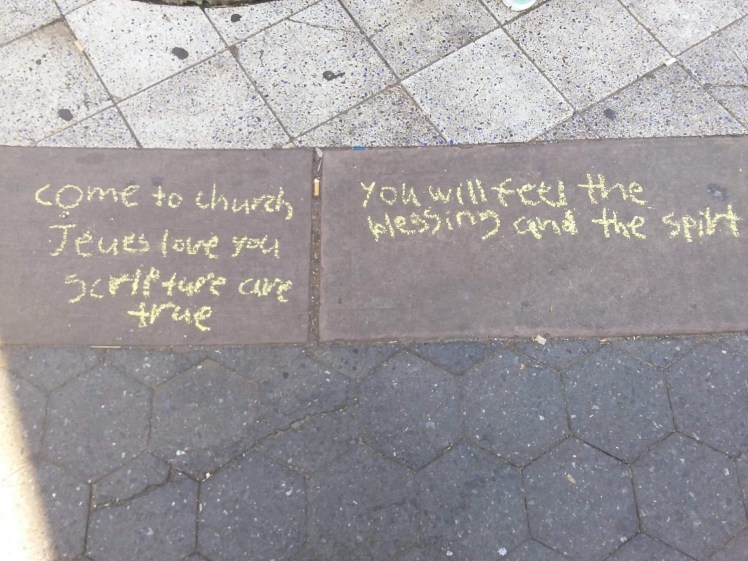 come to church
Jeues love you
scripture are
true
you will feel the
blessing and the spirt